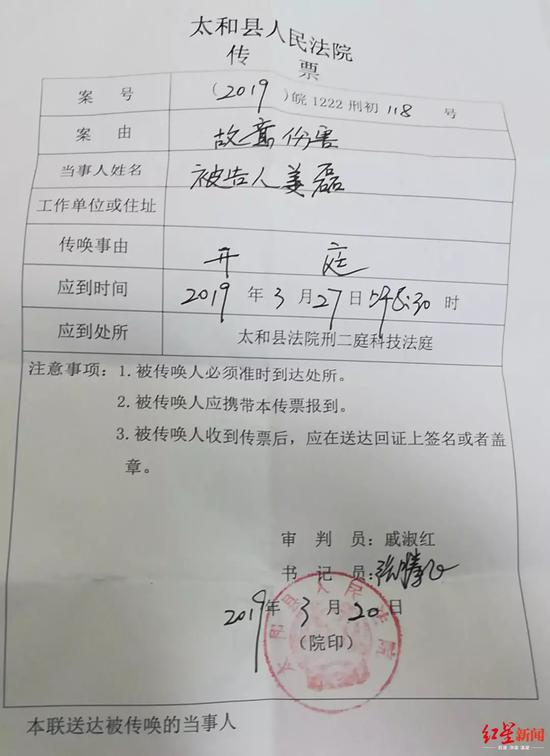 太和县人民法院
传 票
案 号 (2019)皖1222刑初118号
案 由 故意伤害
当事人姓名 被告人姜磊
工作单位或住址
传唤事由 开 庭
应到时间 2019年3月27日 8:30时
应到处所 太和县法院刑二庭科技法庭
注意事项：1.被传唤人必须准时到达处所。
2.被传唤人应携带本传票报到。
3.被传唤人收到传票后，应在送达回证上签名或者盖
章。
审 判 员：戚淑红
书 记 员：张腾飞
2019年3月20日
(院印)
太和县人民法院
本联送达被传唤的当事人
红星新闻